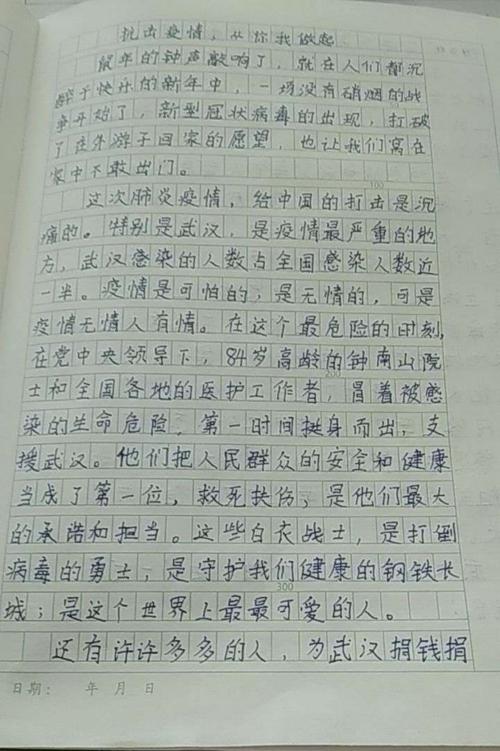 抗击疫情，从你我做起
鼠年的钟声敲响了，就在人们都沉
醉于快乐的新年中，一场没有硝烟的战
争开始了，新型冠状病毒的出现，打破
了在外游子回家的愿望，也让我们窝在
家中不敢出门。
100
这次肺炎疫情，给中国的打击是沉
痛的。特别是武汉，是疫情最严重的地
方，武汉感染的人数占全国感染人数近
一半。疫情是可怕的，是无情的，可是
疫情无情人有情。在这个最危险的时刻，
在党中央领导下，84岁高龄的钟南山院
200
士和全国各地的医护工作者，冒着被感
染的生命危险，第一时间挺身而出，支
援武汉。他们把人民群众的安全和健康
当成了第一位，救死扶伤，是他们最大
的承诺和担当。这些白衣战士，是打倒
病毒的勇士，是守护我们健康的钢铁长
300
城；是这个世界上最最可爱的人。
还有许许多多的人，为武汉捐钱捐
日期： 年 月 日